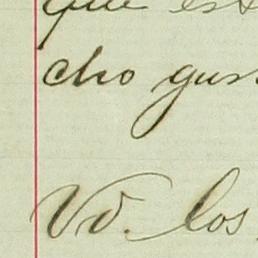 que es
cho gus
Vd. los